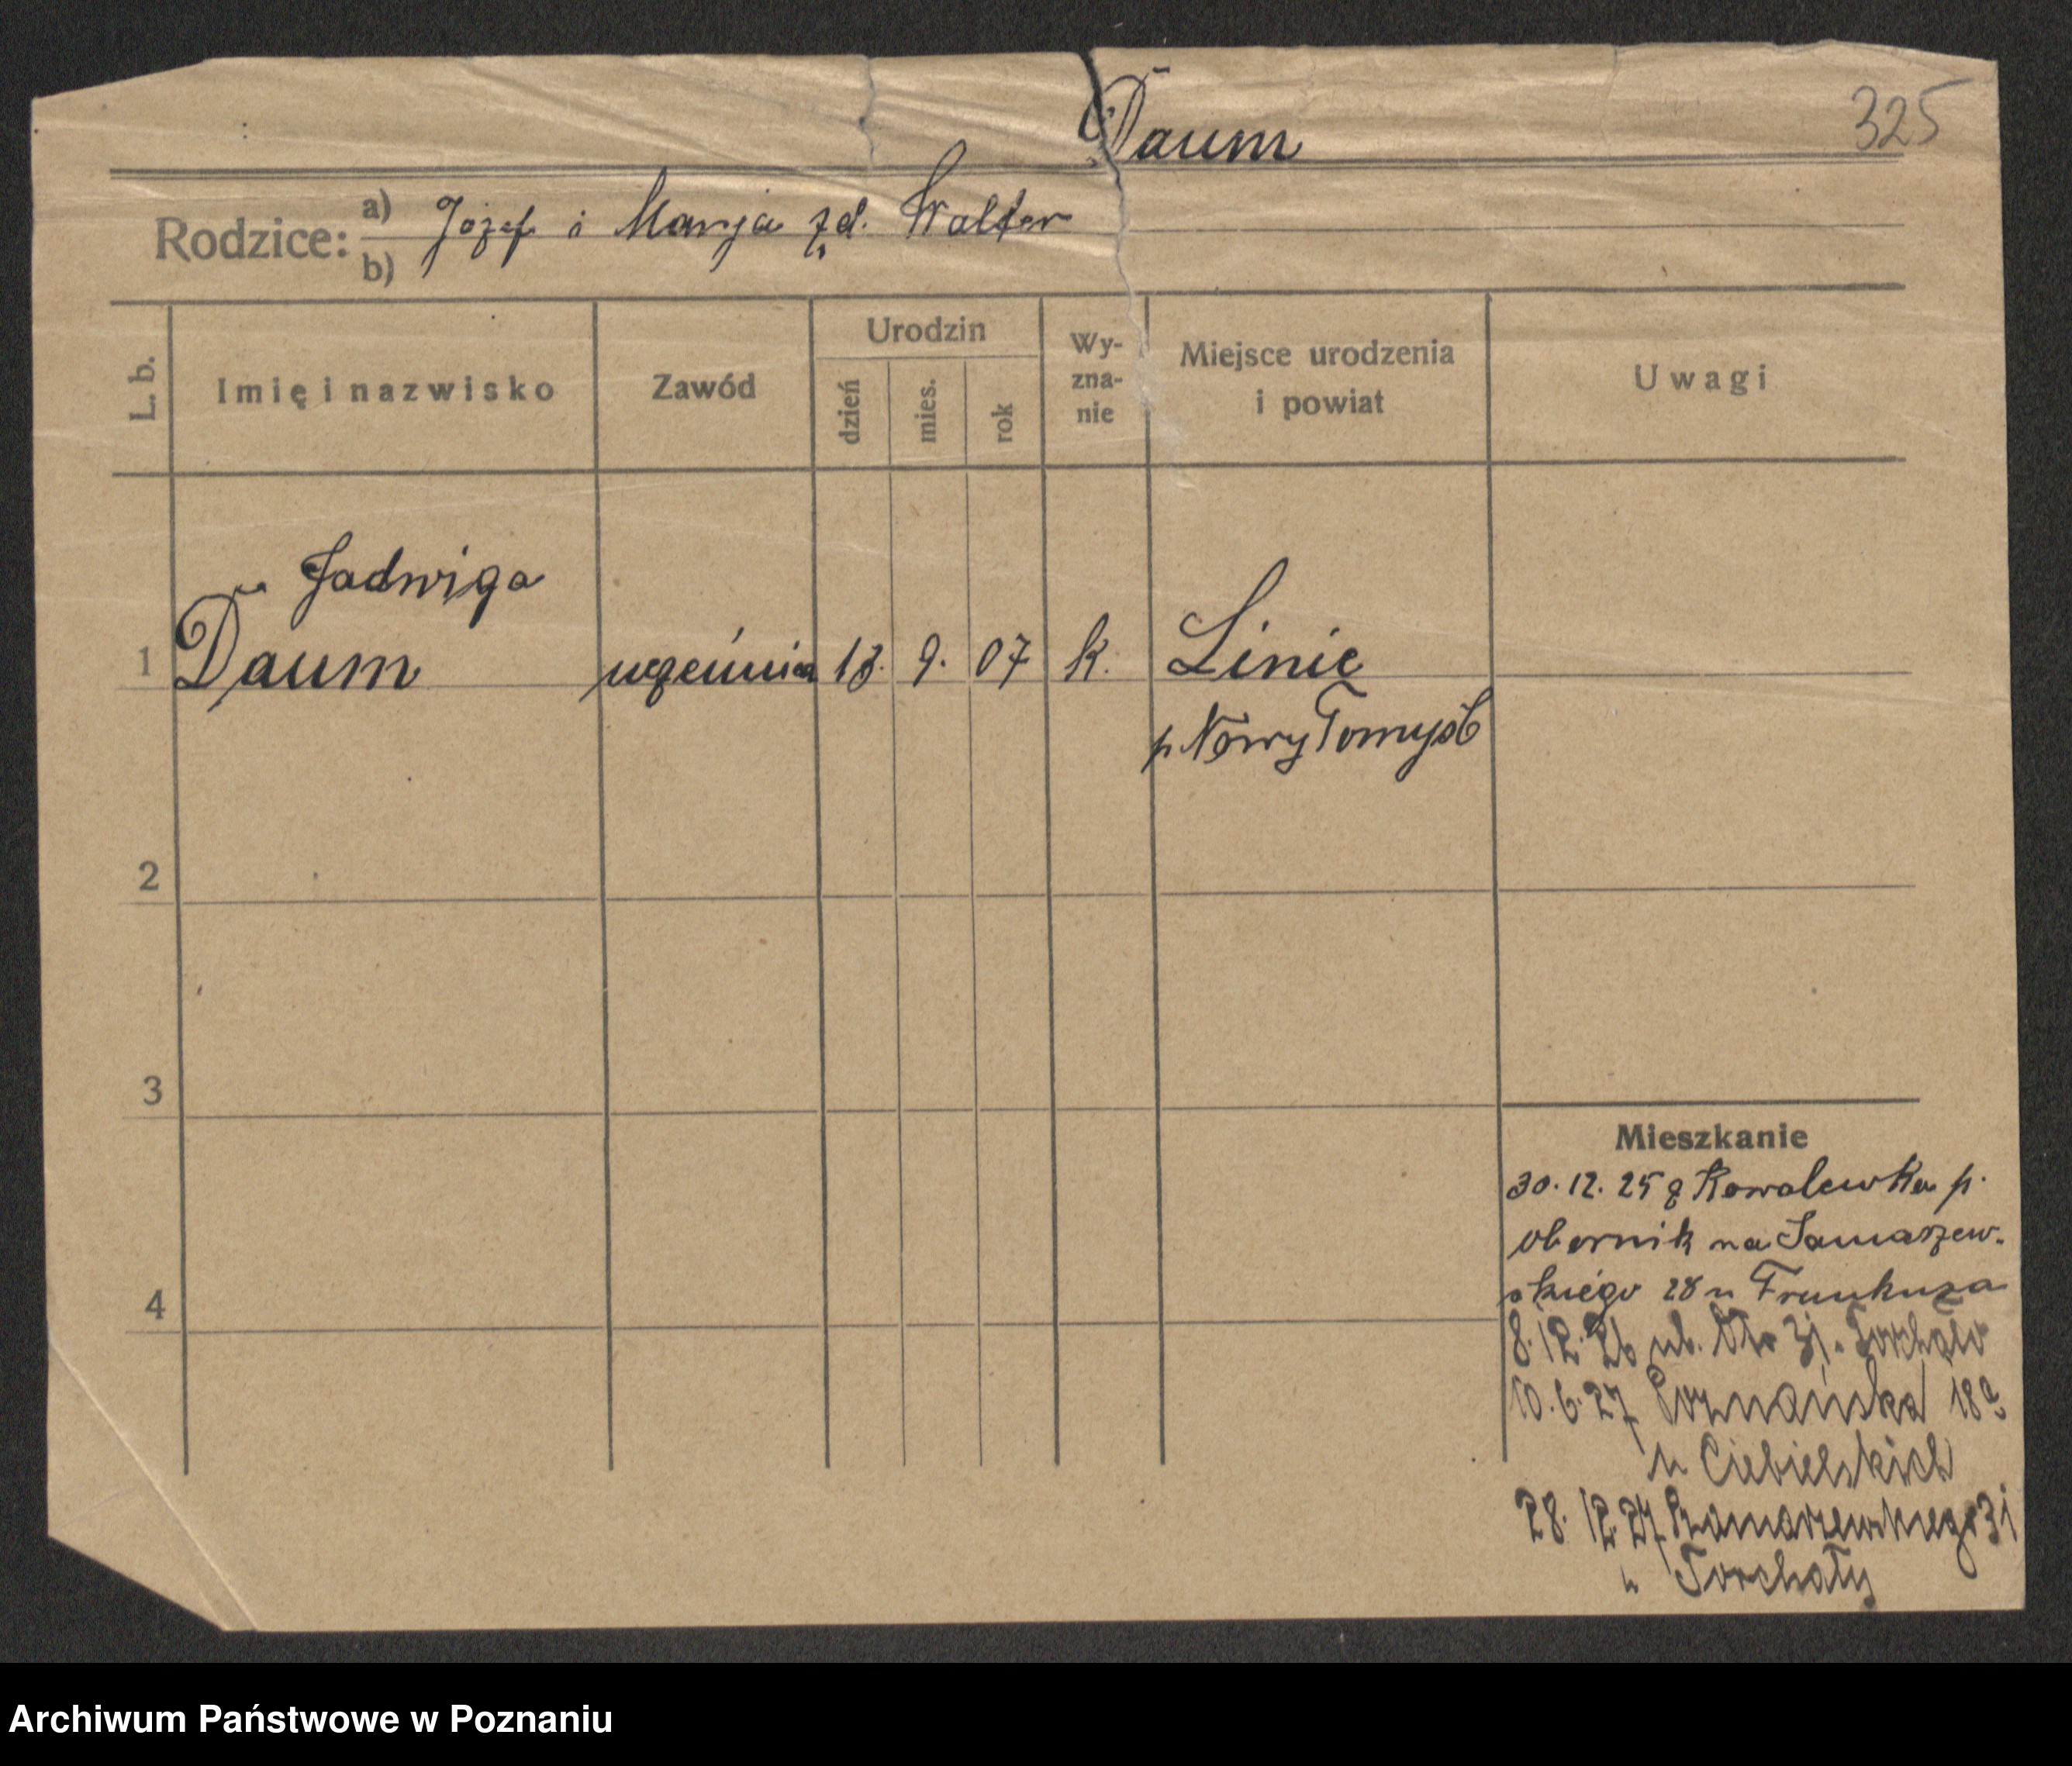 Daum
325
Rodzice: a) Józef i Marja zd. Walter
b)
L. b.
Imię i nazwisko
Zawód
Urodzin
dzień
mies.
rok
Wy-
zna-
nie
Miejsce urodzenia
i powiat
Uwagi
Jadwiga
1 Daum uczennica 13. 9. 07 k. Linie
p Nowy Tomyśl
2
3
4
Mieszkanie
30. 12. 25 z Kowalewka p.
obornik na Samarzew-
skiego 28 u
8. 12. 26 31.
10. 6. 27 Poznańska 18a
u Ciebielskich
28. 12. 27 Szamarzewskiego 31
u Torchały
Archiwum Państwowe w Poznaniu